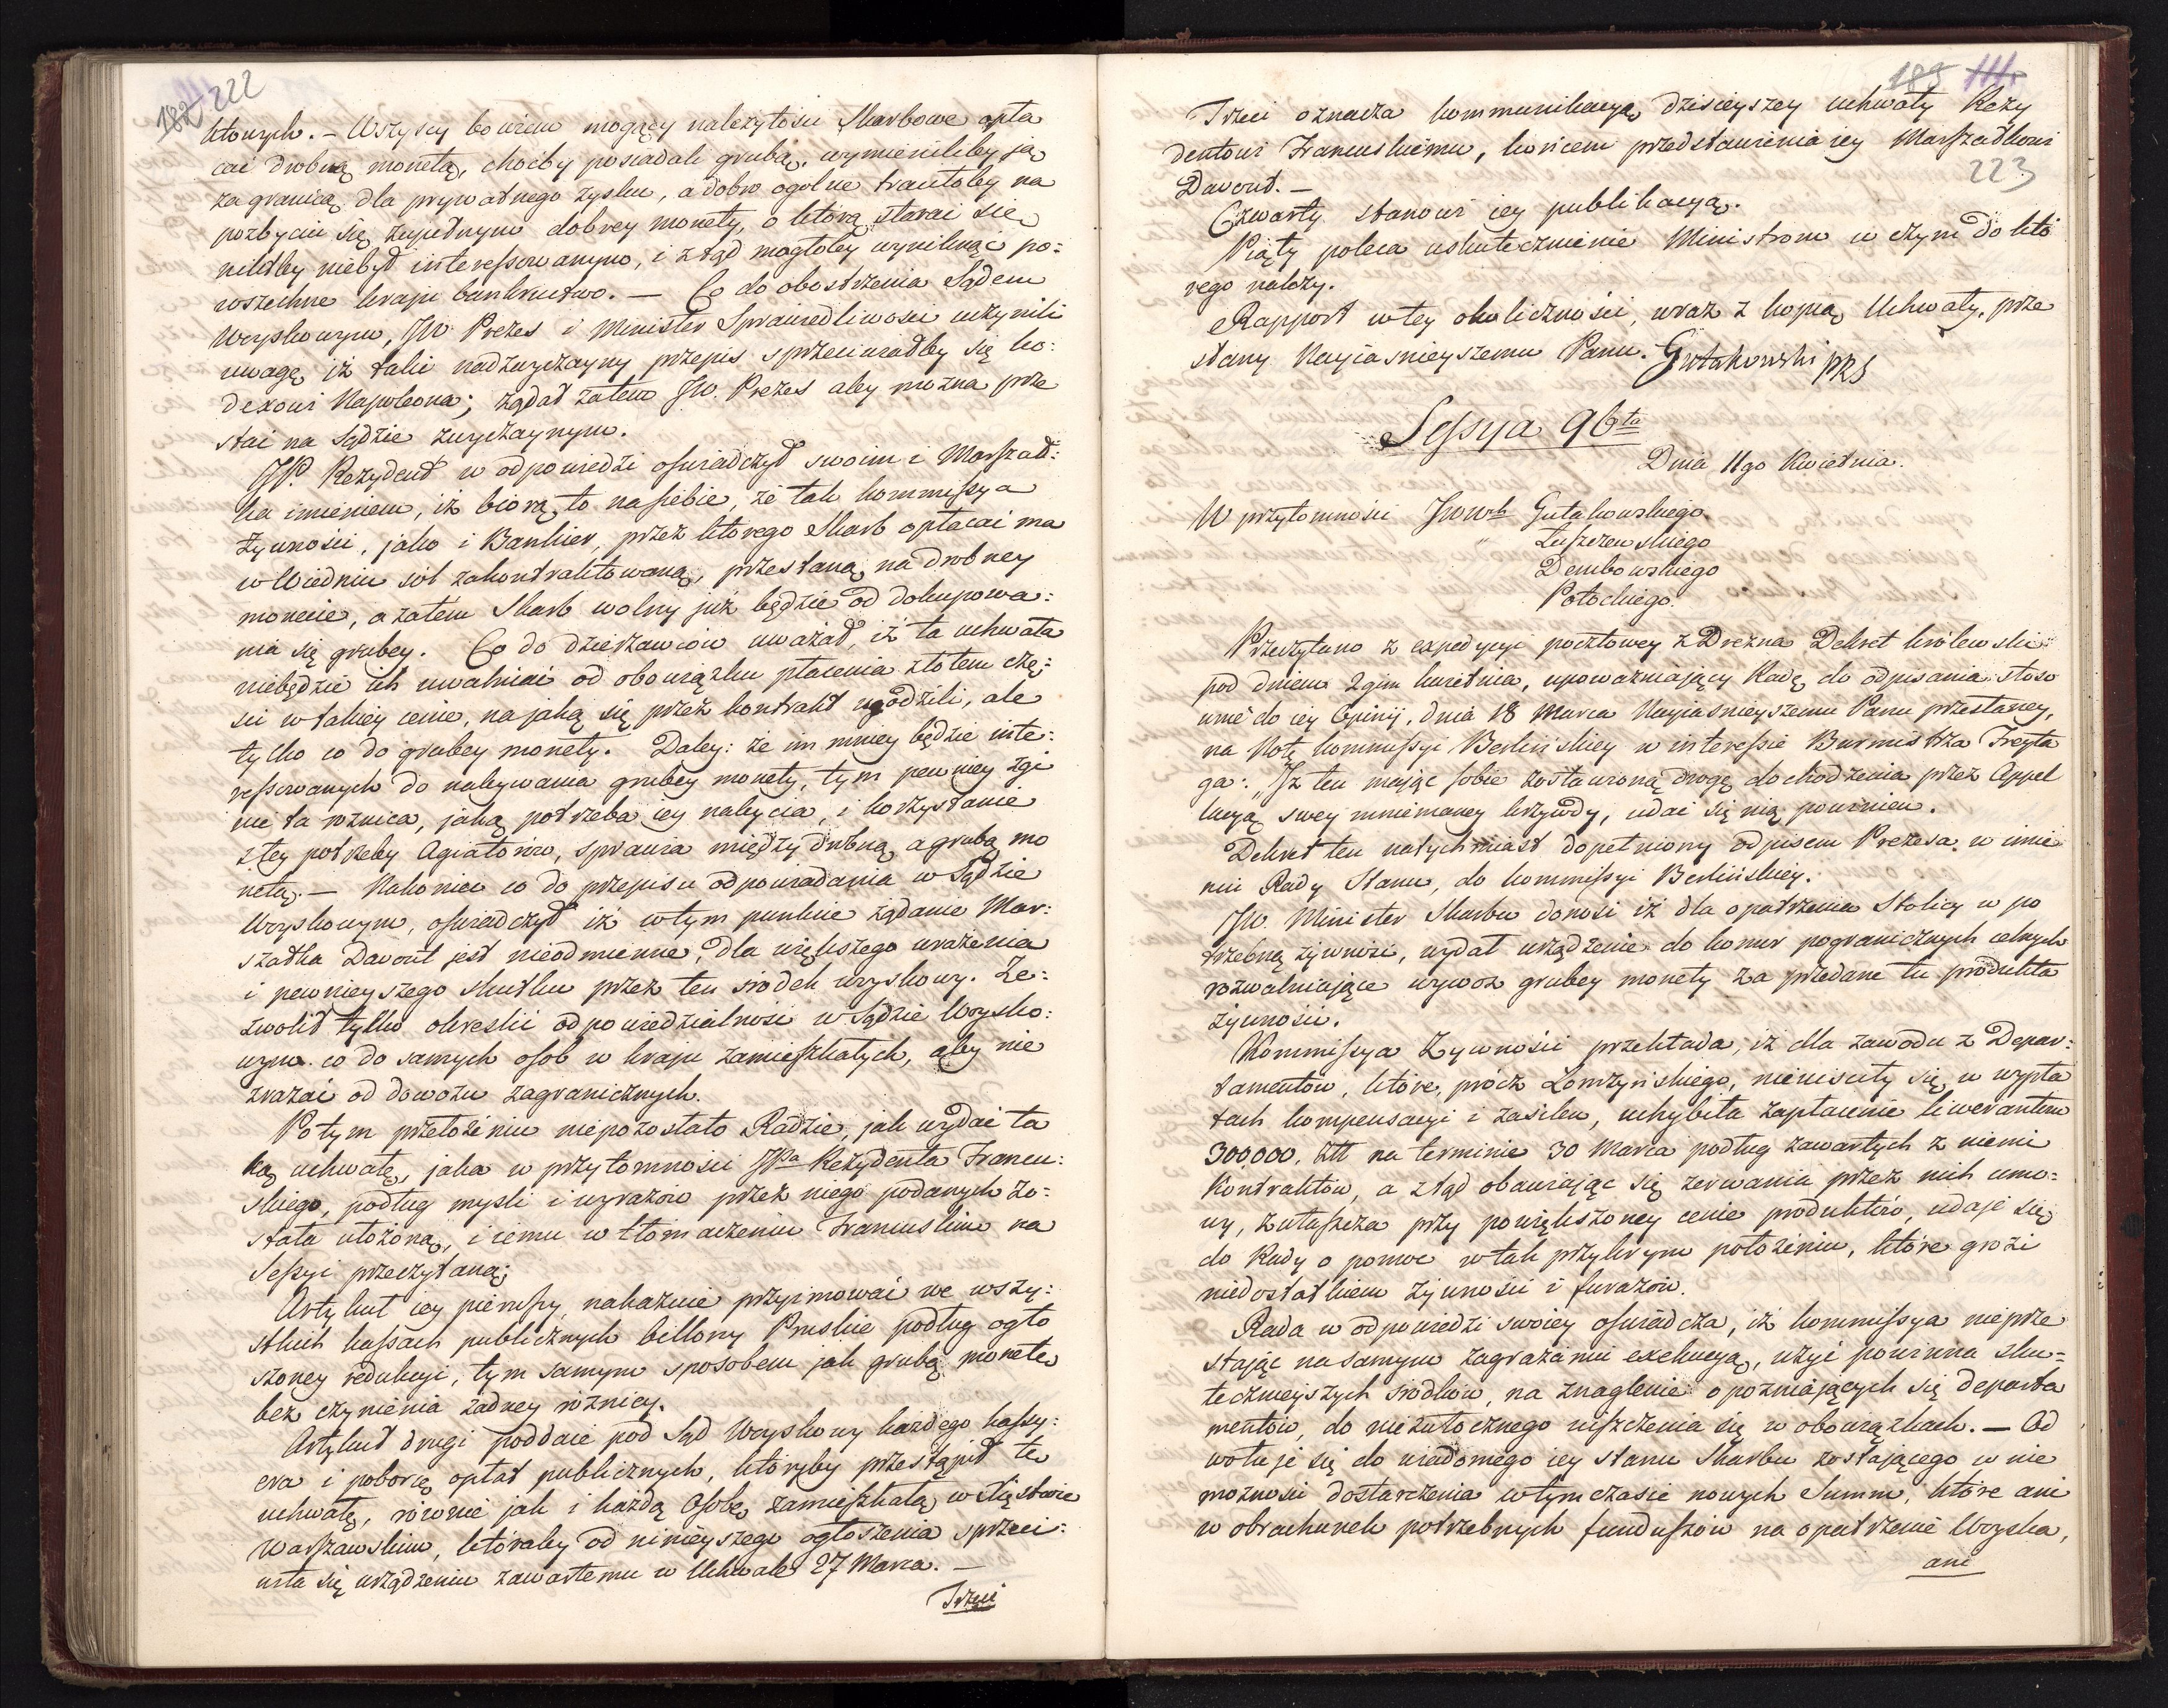 182 222
których. – Wszyscy bowiem mogący należytości Skarbowe opła
cać drobną monetą, choćby posiadali grubą, wymienialiby ją
za granicą dla prywatnego zysku, a dobro ogólne traciłoby na
pozbyciu się zupełnym dobrey monety, o którą starać się
niktby niebył interessowanym, i ztąd mogłoby wyniknąć po=
wszechne kraju bankructwo. — Co do obostrzenia Sądem
Woyskowym, JW. Prezes i Minister Sprawiedliwosci uczynili
uwagę iż taki nadzwyczayny przepis sprzeciwiałby się ko=
dexowi Napoleona; żądał zatem JW. Prezes aby można prze
stać na Sądzie zwyczaynym.
JP. Rezydent w odpowiedzi oświadczył swoim i Marszał=
ka imieniem, iż biorą to na siebie, że tak kommissya
żywności, jako i Bankier, przez którego Skarb opłacać ma
w Wiedniu sól zakontraktowaną, przestaną na drobney
monecie, a zatém Skarb wolny już będzie od dokupowa=
nia się grubey. Co do dzierżawców uważał, iż ta uchwała
niebędzie ich uwalniać od obowiązku płacenia złotem czę=
ści w takiey cenie, na jaką się przez kontrakt ugodzili, ale
tylko co do grubey monety. Daley: że im mniey będzie inte=
ressowanych do nabywania grubey monety, tym pewniey zgi
nie ta roznica, jaką potrzeba iey nabycia, i korzystanie
z tey potrzeby Agiatorów, sprawia między drobną a grubą mo
netą. — Nakoniec co do przepisu odpowiadania w Sądzie
Woyskowym, oświadczył iż w tym punkcie żądanie Mar=
szałka Davout jest nieodmienne, dla większego wrażenia
i pewnieyszego skutku przez ten srodek woyskowy. Ze=
zwolił tylko okreslić odpowiedzialność w Sądzie Woysko=
wym co do samych osób w kraju zamieszkałych, aby nie
zrażać od dowozu zagranicznych.
Po tym przełożeniu niepozostało Radzie, jak wydać ta
ką uchwałę, jaka w przytomności JPa Rezydenta Francu=
skiego, podług mysli i wyrazów przez niego podanych zo=
stała ułożoną, i iemu w tłomaczeniu Francuskim na
Sessyi przeczytaną;
Artykuł iey pierwszy nakazuie przyimować we wszy=
stkich kassach publicznych billony Pruskie podług ogło
szoney redukcyi, tym samym sposobem jak grubą monetę
bez czynienia żadney różnicy.
Artykuł drugi poddaie pod Sąd Woyskowy każdego kassy=
era i poborcę opłat publicznych, któryby przestąpił tę
uchwałę, równie jak i każdą Osobę zamieszkałą w Xięstwie
Warszawskim, któraby od ninieyszego ogłoszenia sprzeci=
wiła się urządzeniu zawartemu w Uchwale 27 Marca. —
Trzeci
183 111.
223
Trzeci oznacza kommunikacyą dzisieyszey uchwały Rezy
dentowi Francuskiemu, końcem przedstawienia iey Marszałkowi
Davout. —
Czwarty stanowi iey publikacyą.
Piąty poleca uskutecznienie Ministrom w czym do któ
rego należy.
Rapport w tey okoliczności, wraz z kopią Uchwały, prze
słany Nayiaśnieyszemu Panu. Gutakowski PRS
Sessya 96ta
Dnia 11go Kwietnia.
W przytomności JWWch Gutakowskiego
" Łuszczewskiego
Dembowskiego
Potockiego.
Przeczytano z expedycyi pocztowey z Drezna Dekret królewski
pod dniem 2gim kwietnia, upoważniający Radę do odpisania stoso
wnie do iey Opinij, dnia 18 Marca Nayiaśnieyszemu Panu przesłaney,
na Notę kommissyi Berlińskiey w interessie Burmistrza Freyta
ga: „Iż ten mając sobie zostawioną drogę dochodzenia przez Appel
lacyą swey mniemaney krzywdy, udać się nią powinien.
Dekret ten natychmiast dopełniony odpisem Prezesa w imie
niu Rady Stanu, do kommissyi Berlińskiey.
JW. Minister Skarbu donosi iż dla opatrzenia Stolicy w po
trzebną żywność, wydał urządzenie do komor pogranicznych celnych
rozwalniające wywoz grubey monety za przedane tu produkta
żywności.
Kommissya Żywności przekłada, iż dla zawodu z Depar=
tamentów, które, prócz Łomżyńskiego, nieuiściły się w wypła
tach kompensacyi i zasiłku, uchybiła zapłacenie liwerantom
300,000. Złł na terminie 30 Marca podług zawartych z niemi
Kontraktów, a ztąd obawiając się zerwania przez nich umo=
wy, zwłaszcza przy powiększoney cenie produktów, udaje się
do Rady o pomoc w tak przykrym położeniu, które grozi
niedostatkiem żywności i furażów.
Rada w odpowiedzi swoiey oświadcza, iż kommissya nieprze
stając na samym zagrażaniu exekucyą, użyć powinna sku=
tecznieyszych srodków, na znaglenie opozniających się departa
mentów, do niezwłocznego uiszczenia się w obowiązkach. — Od
wołuje się do wiadomego iey stanu Skarbu zostającego w nie
możności dostarczenia w tym czasie nowych Summ, które ani
w obrachunek potrzebnych funduszów na opatrzenie Woyska,
ani